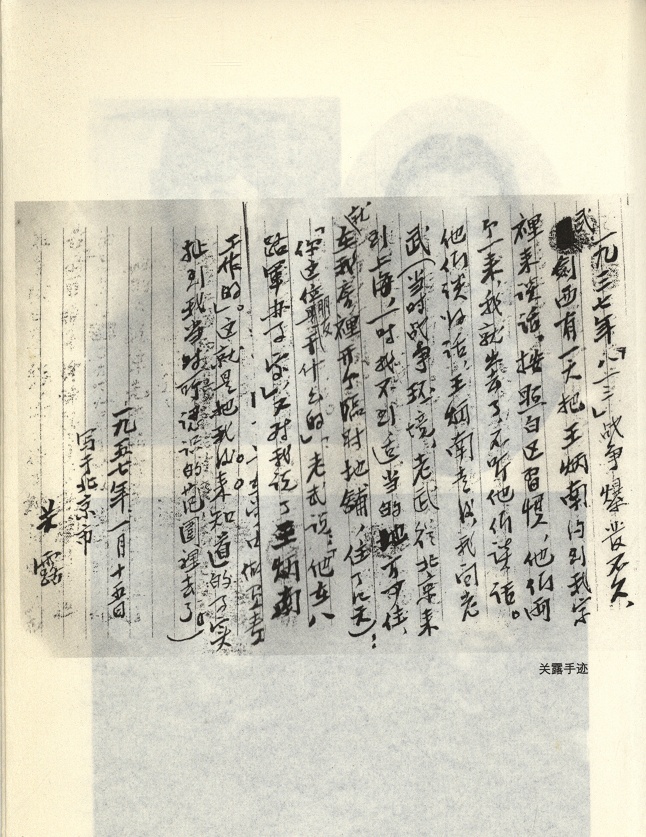 一九三七年「八一三」战争爆发不久、
武剑西有一天把王炳南约到我家
裡来谈话。按照白区習慣，他们两
个一来，我就出去了，不听他们谈话。
他们谈好话，王炳南走后，我问老
武（当时战争环境，老武从北京来
到上海，一时找不到适当的地方住，
就在我房裡开个临时地舖，住了几天）：
「你这位朋友是干什么的」老武说：「他在八
路军办事家」又对我说了王炳南
工作的。」这就是把我后来知道的事实
扯到我当时所认识的范围裡去了）。
一九五七年一月十五日
写于北京市
关露
关露手迹